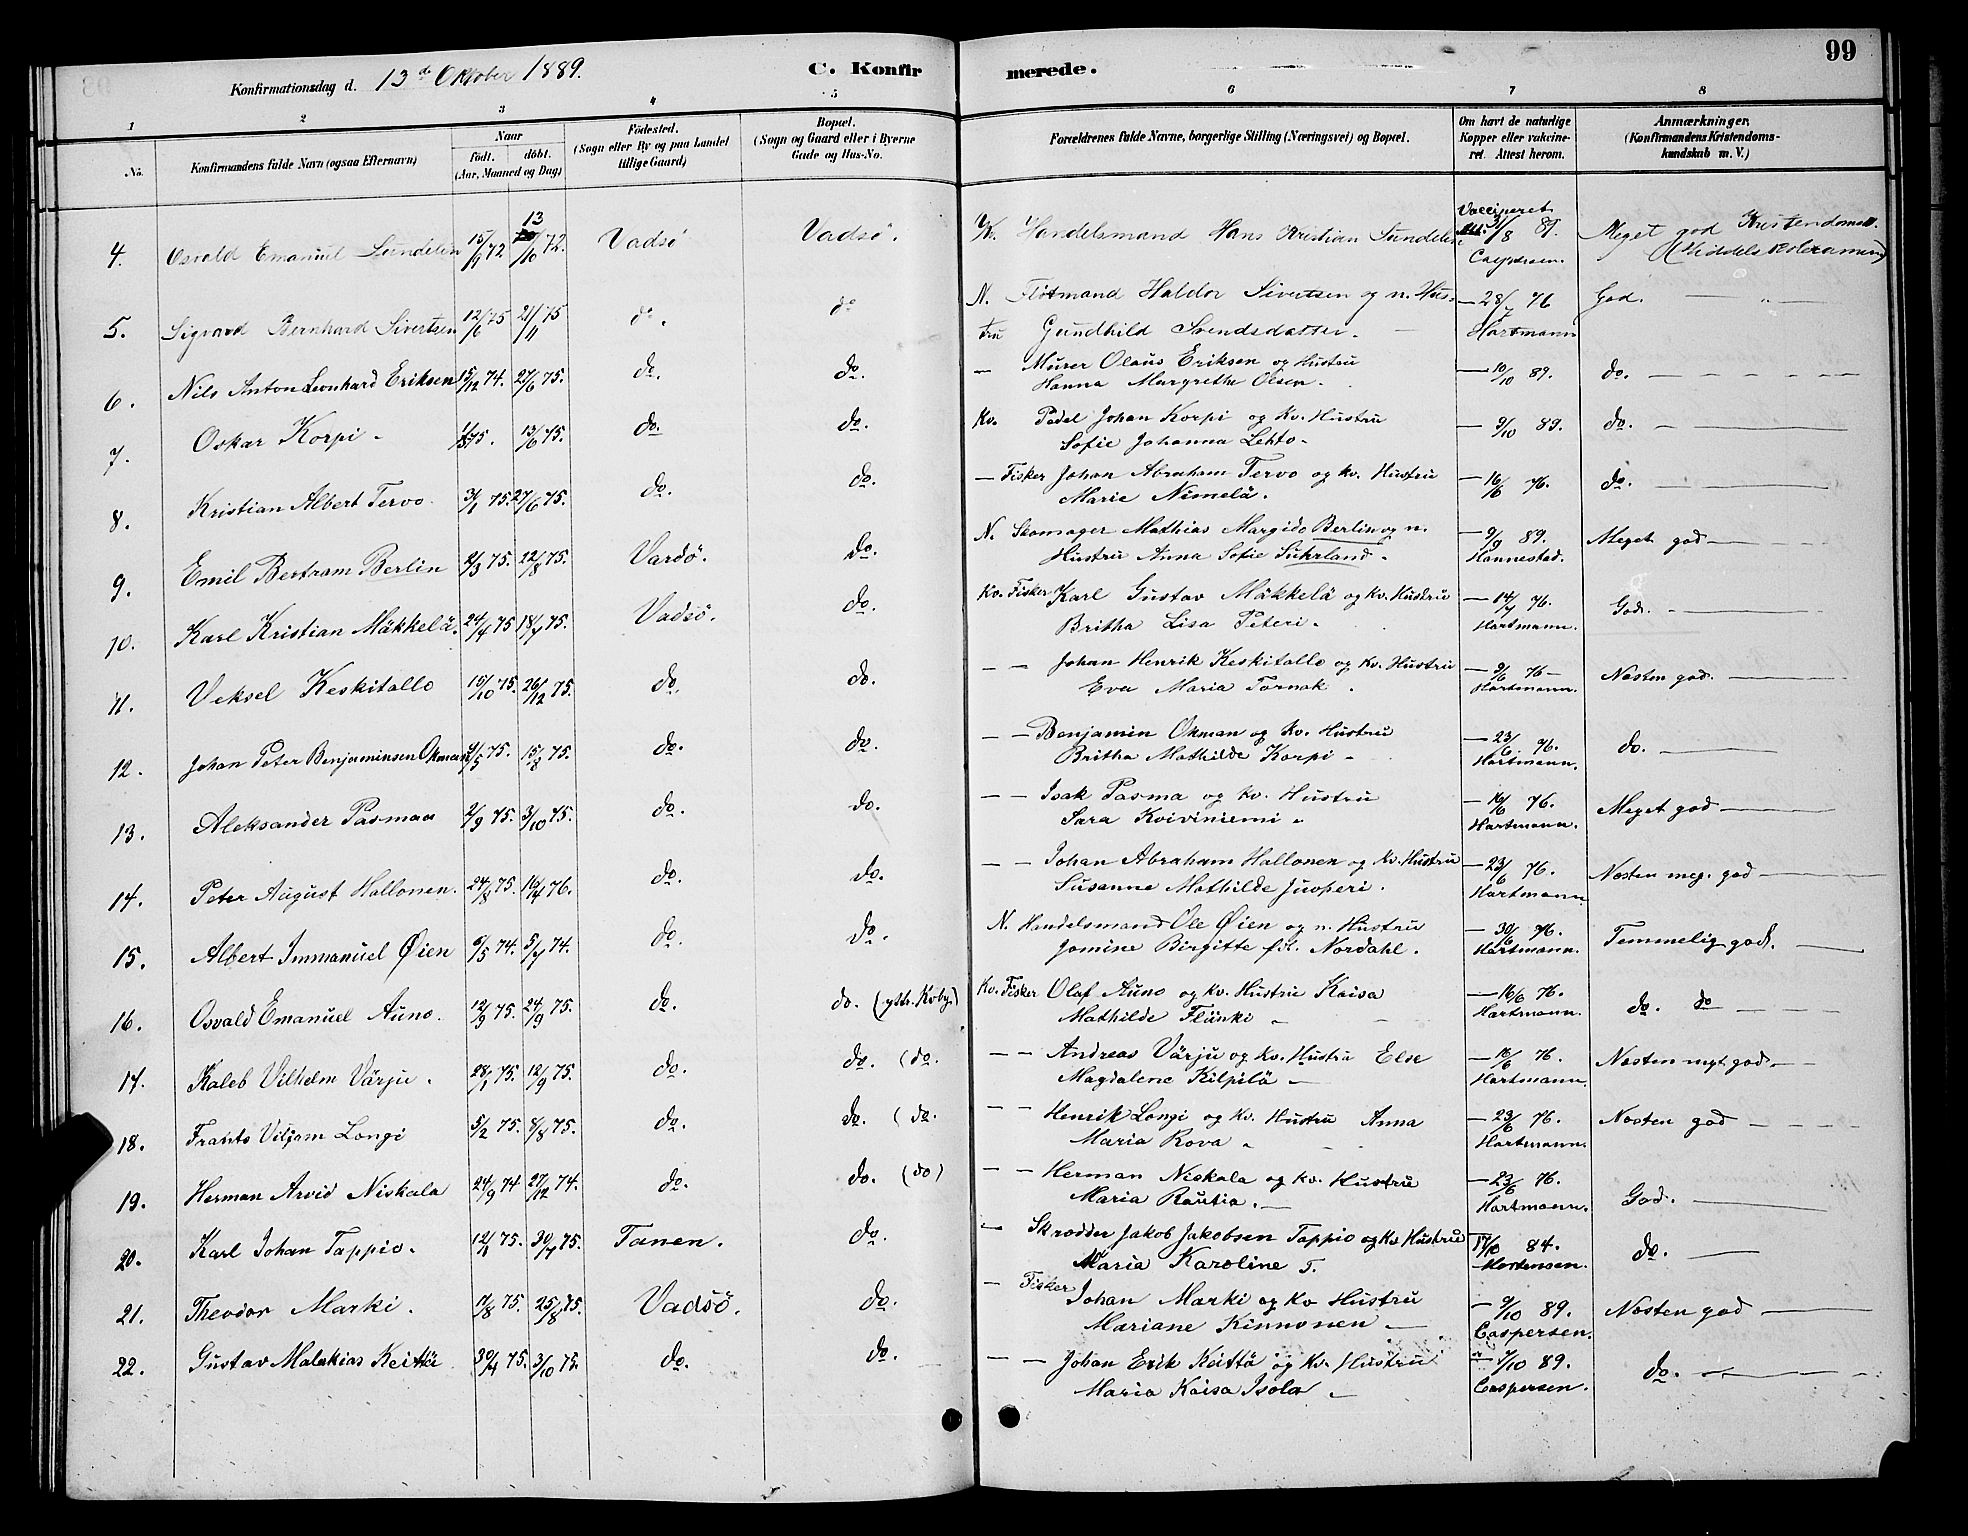 Konfirmationsdag d. 13de Oktober 1889. C. Konfirmerede. 99
1 2 3 4 5 6 7 8
No. Konfirmandens fulde Navn (ogsaa Efternavn) Naar født. døbt. (Aar, Maaned og Dag) Fødested. (Sogn eller By og paa Landet tillige Gaard) Bopæl. (Sogn og Gaard eller i Byerne Gade og Hus-No. Forældrenes fulde Navne, borgerlige Stilling (Næringsvei) og Bopæl. Om havt de naturlige Kopper eller vakcineret. Attest herom. Anmærkninger. (Konfirmandens Kristendomskundskab m. V.)
4. Osvald Emanuel Sundelin 15/9 72 13/10 72. Vadsö Vadsö. Kv. Handelsmand Hans Kristian Sundelin Vaccineret 31/8 89. Meget god Kristendomsk.
Caspersen. (Middelskoleexamen)
5. Sigvard Bernhard Sivertsen 12/6 75 21/11 75 do. do N. Flötmand Haldor Sivertsen og n. Hus- — 28/7 76 God. — „
tru Gundhild Svendsdatter. Hartmann
6. Nils Anton Leonhard Eriksen 15/12 74. 27/6 75. do. do. — Murer Olaus Eriksen og Hustru — 10/10 89. do. — — — — —
Hanna Margrethe Olsen.
7. Oskar Korpi 75. 13/6 75. do. do. Kv. Johan Korpi og Kv. Hustru — 9/10 89. do. —
Sofie Johanna Lehto.
8. Kristian Albert Tervo. 3/1 75. 27/6 75. do. do. — Fisker Johan Abraham Tervo og Kv. Hustru — 16/6 76. do. —
Marie Nimelä.
9. Emil Bertram Berlin 2/3 75. 22/8 75. Vardö. do. N. Skomager Mathias Margido Berlin og n. — 9/9 89. Meget god —
Hustru Anna Sofie Suhrland. Hannestad.
10. Karl Kristian Mäkkelä. 24/4 75 18/7 75. Vadsö. do. Kv. Fisker Karl Gustav Mäkkelä og Kv. Hustru — 14/7 76. God. —
Britha Lisa Peteri. Hartmann.
11. Veksel Keskitallo 15/10 75. 26/12 75. do. do. — — Johan Henrik Keskitallo og Kv. Hustru — 9/6 76 — Næsten god. —
Eva Maria Tornak. Hartmann.
12. Johan Peter Benjaminsen Okman 9/5 75. 15/8 75. do. do. — — Benjamin Okman og Kv. Hustru — 23/6 76. do. —
Britha Mathilde Korpi. Hartmann.
13. Aleksander Pasmaa 2/9 75. 3/10 75. do. do. — — Isak Pasma og Kv. Hustru — 16/6 76. Meget god —
Sara Koiviniemi. Hartmann.
14. Peter August Hallonen. 24/8 75. 16/4 76. do. do. — — Johan Abraham Hallonen og Kv. Hustru — 23/6 76. Næsten meg. god —
Susanne Mathilde Juoperi. Hartmann
15. Albert Immanuel Øien 6/5 74. 5/7 74. do. do. N. Handelsmand Ole Øien og n. Hustru — 30/6 76. Temmelig god. —
Jomine Birgitte f. Nordahl. Hartmann.
16. Osvald Emanuel Auno. 12/9 75. 24/9 75. do. do. (yttr. Kvby.) Kv. Fisker Olaf Auno og Kv. Hustru Kaisa — 16/6 76. do. do — — —
Mathilde Flünki Hartmann.
17. Kaleb Vilhelm Värju. 28/1 75. 12/9 75. do. do. (do. — — Andreas Värju og Kv. Hustru Else — 16/6 76. Næsten mgt. god. —
Magdalene Kilpilä — Hartmann.
18. Frants Viljam Longi 5/2 75. 8/8 75. do. do. (do. — — Henrik Longi og Kv. Hustru Anna — 23/6 76. Næsten god — — — —
Maria Rova Hartmann.
19. Herman Arvid Niskala 24/9 74 27/12 74. do. do. (do) — — Herman Niskala og Kv. Hustru — 23/6 76. God. —
Maria Rautia. — Hartmann.
20. Karl Johan Tappio. 12/1 75. 30/7 75. Tanen. do. — Skrædder Jakob Jakobsen Tappio og Kv Hustru 17/10 84. do. —
Maria Karoline T. Mortensen.
21. Theodor Marki. 17/8 75. 25/8 75. Vadsö. do. — Fisker Johan Marki og Kv Hustru — 9/10 89. Næsten god —
Mariane Kinnonen — Caspersen.
22. Gustav Malakias Keittä 30/4 75. 3/10 75. do. do. — — Johan Erik Keittä og Kv. Hustru — 9/10 89. do. —
Maria Kaisa Isola — Caspersen.